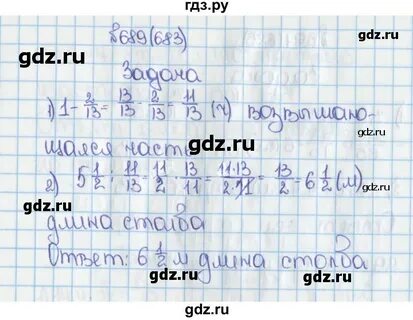 гдз.ру
№689(683)
gdz.ru gdz.ru
Задача
1) 1 - 2/13 = 13/13 - 2/13 = 11/13 (ч) возвышаю-
gdz.ru gdz.ru
щаяся часть
gdz.ru
2) 5 1/2 : 11/13 = 11/2 · 13/11 = 11·13/2·11 = 13/2 = 6 1/2 (м)
gdz.ru gdz.ru
длина столба
gdz.ru
Ответ: 6 1/2 м длина столба
gdz.ru gdz.ru